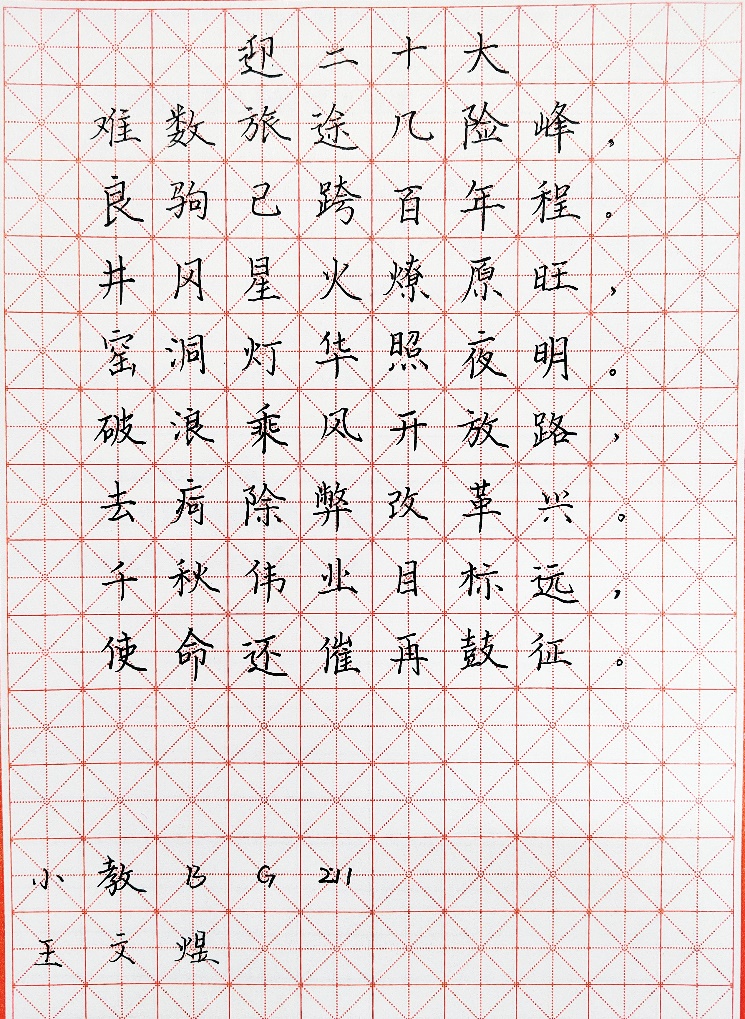 迎二十大
难数旅途几险峰，
良驹已跨百年程。
井冈星火燎原旺，
窑洞灯华照夜明。
破浪乘风开放路，
去疴除弊改革兴。
千秋伟业目标远，
使命还催再鼓征。
小教BG211
王文煜